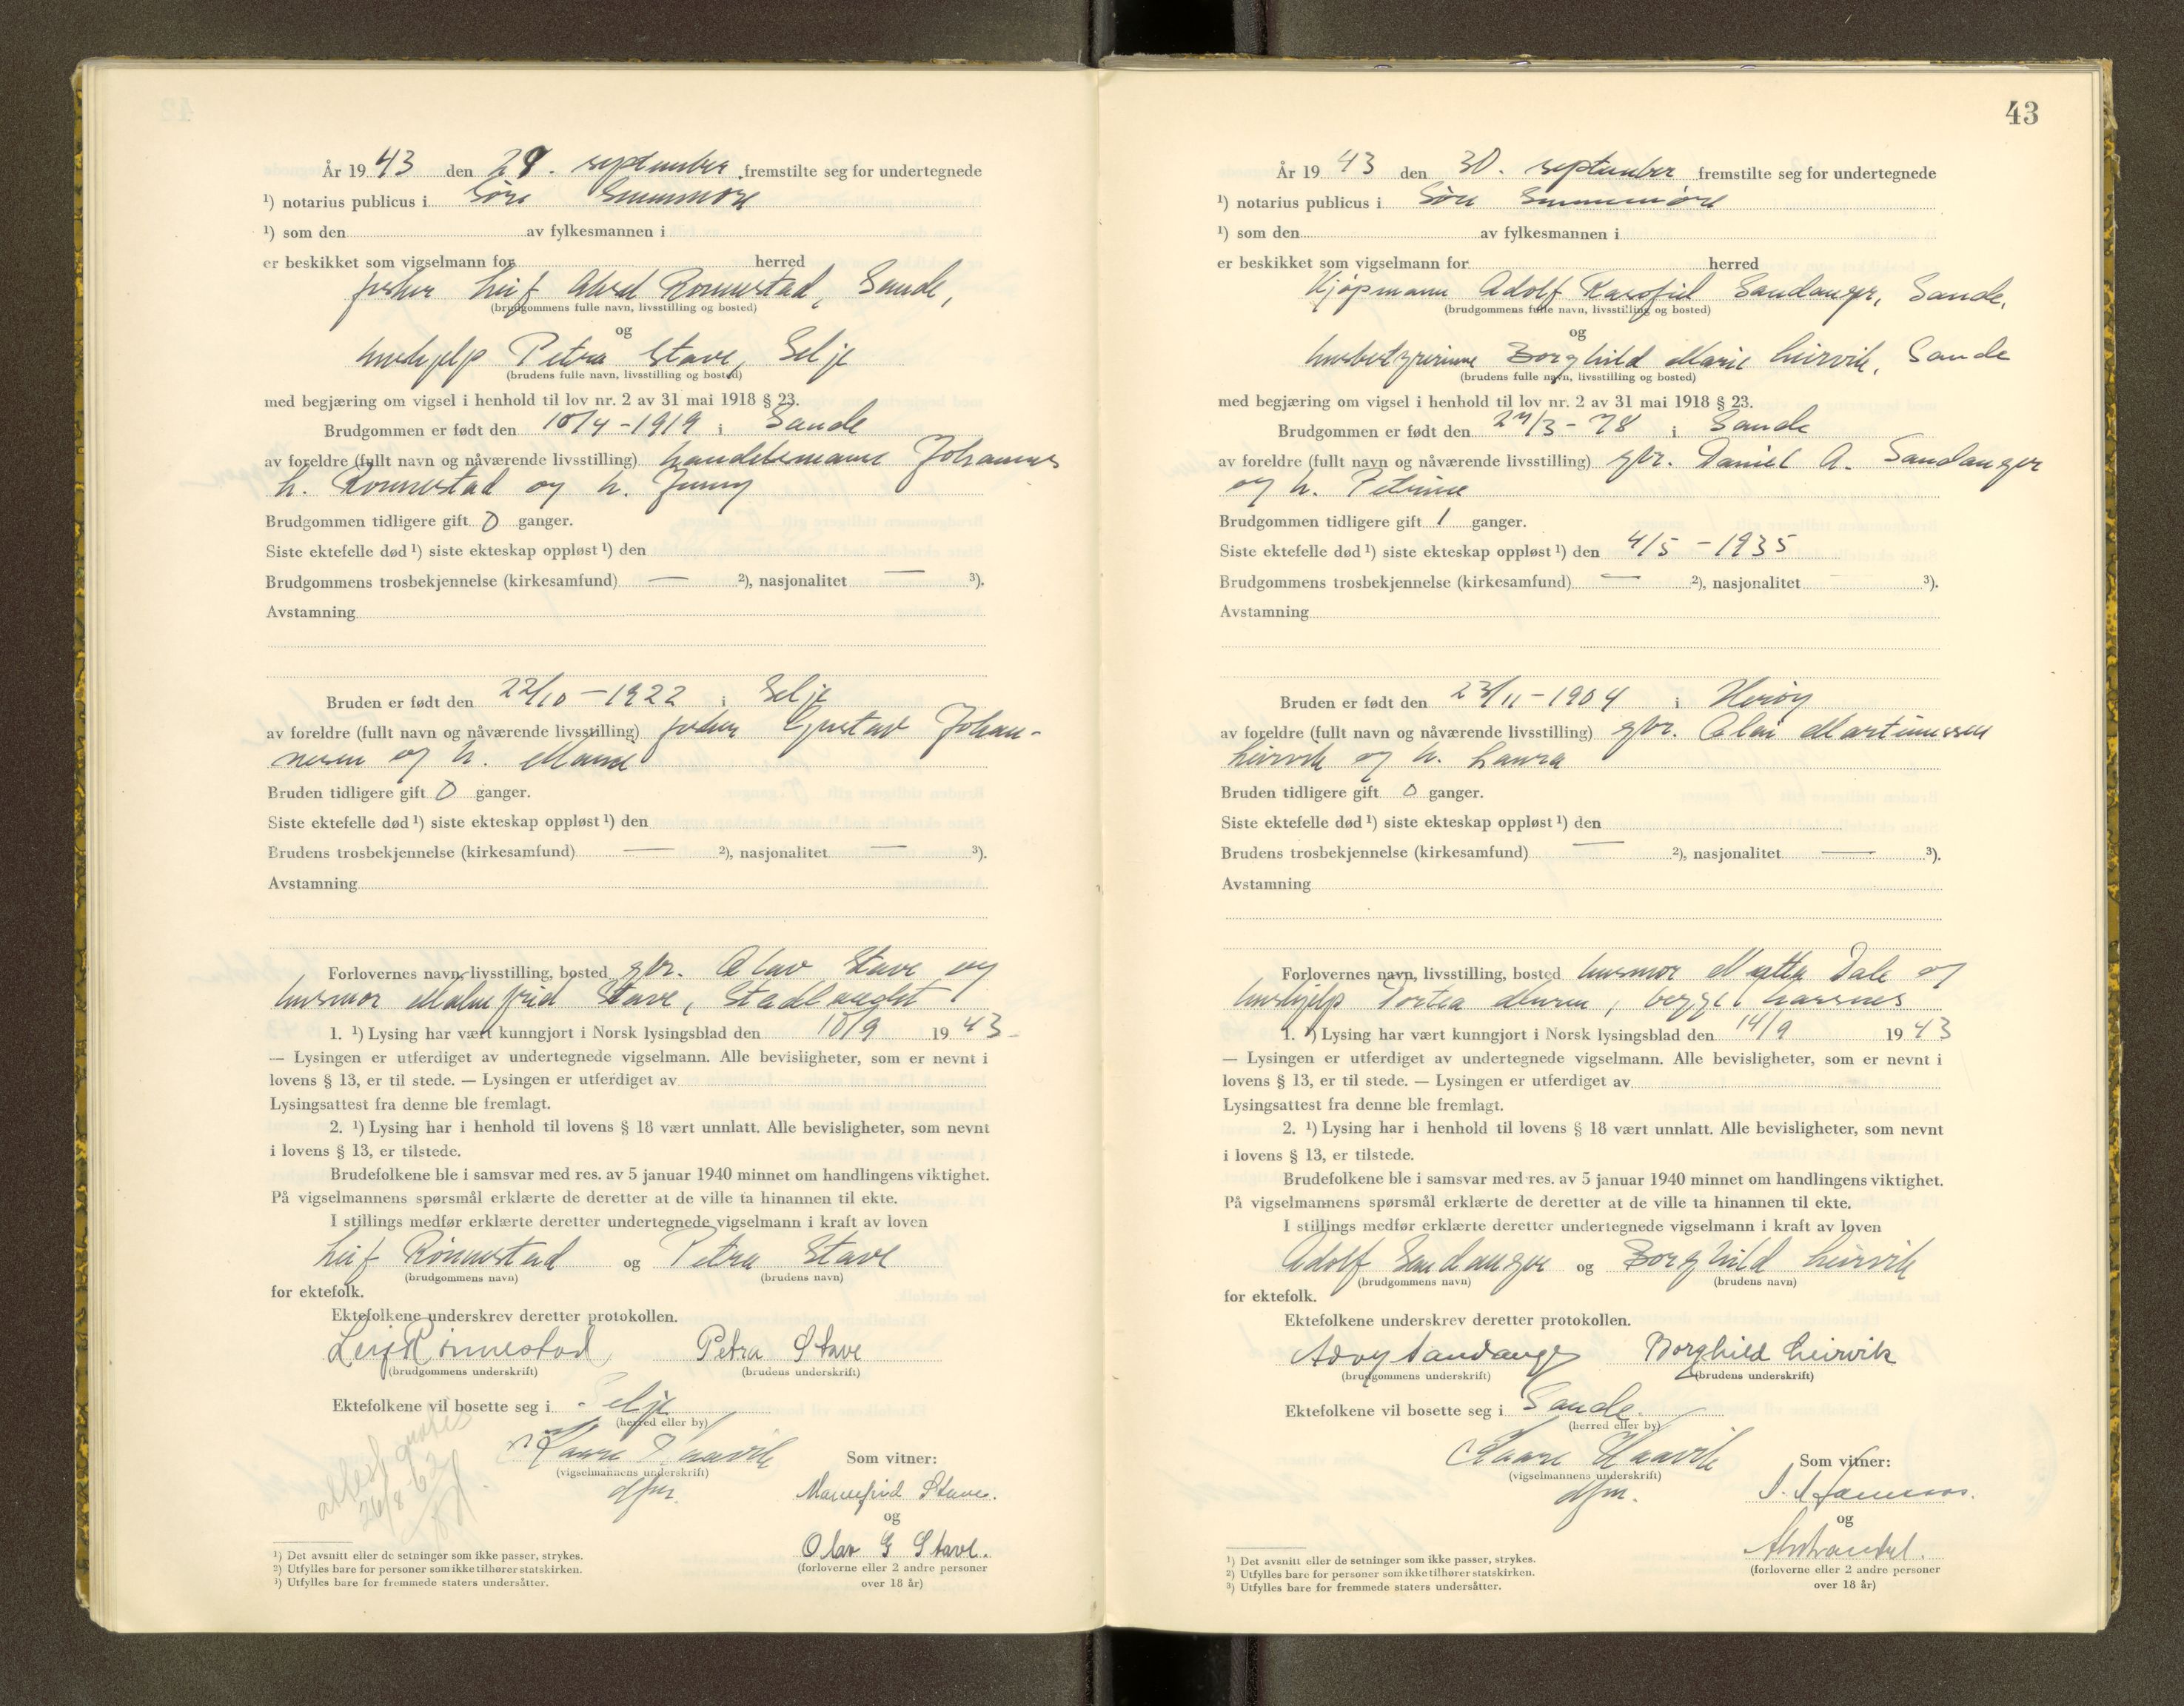 År 1943 den 29. september fremstilte seg for undertegnede
¹) notarius publicus i Søre Sunnmøre
¹) som den av fylkesmannen i
er beskikket som vigselmann for herred
fisker Leif Rønnestad, Sande,
(brudgommens fulle navn, livsstilling og bosted)
og
hushjelp Petra Stave, Selje
(brudens fulle navn, livsstilling og bosted)
med begjæring om vigsel i henhold til lov nr. 2 av 31 mai 1918 § 23.
Brudgommen er født den 10/4-1919 i Sande
av foreldre (fullt navn og nåværende livsstilling) handelsmann Johannes
L. Rønnestad og h. Jenny
Brudgommen tidligere gift 0 ganger.
Siste ektefelle død ¹) siste ekteskap oppløst ¹) den
Brudgommens trosbekjennelse (kirkesamfund) — ²), nasjonalitet — ³).
Avstamning
Bruden er født den 22/10-1922 i Selje
av foreldre (fullt navn og nåværende livsstilling) fisker Gustav Johan-
nesen og h.
Bruden tidligere gift 0 ganger.
Siste ektefelle død ¹) siste ekteskap oppløst ¹) den
Brudens trosbekjennelse (kirkesamfund) — ²), nasjonalitet — ³).
Avstamning
Forlovernes navn, livsstilling, bosted gbr. Olav Stave og
husmor Malmfrid Stave, Stadlandet
1. ¹) Lysing har vært kunngjort i Norsk lysingsblad den 10/9 1943
— Lysingen er utferdiget av undertegnede vigselmann. Alle bevisligheter, som er nevnt i
lovens § 13, er til stede. — Lysingen er utferdiget av
Lysingsattest fra denne ble fremlagt.
2. ¹) Lysing har i henhold til lovens § 18 vært unnlatt. Alle bevisligheter, som nevnt
i lovens § 13, er tilstede.
Brudefolkene ble i samsvar med res. av 5 januar 1940 minnet om handlingens viktighet.
På vigselmannens spørsmål erklærte de deretter at de ville ta hinannen til ekte.
I stillings medfør erklærte deretter undertegnede vigselmann i kraft av loven
Leif Rønnestad og Petra Stave
(brudgommens navn) (brudens navn)
for ektefolk.
Ektefolkene underskrev deretter protokollen.
Leif Rønnestad Petra Stave
(brudgommens underskrift) (brudens underskrift)
Ektefolkene vil bosette seg i Selje
(herred eller by)
Kaare Haavik
(vigselmannens underskrift)
dfm.
Som vitner:
Malmfrid Stave.
og
Olav G Stave.
(forloverne eller 2 andre personer
over 18 år)
attest
26/8-62
¹) Det avsnitt eller de setninger som ikke passer, strykes.
²) Utfylles bare for personer som ikke tilhører statskirken.
³) Utfylles bare for fremmede staters undersåtter.
43
År 1943 den 30. september fremstilte seg for undertegnede
¹) notarius publicus i Søre Sunnmøre
¹) som den av fylkesmannen i
er beskikket som vigselmann for herred
Kjøpmann Adolf Sandanger, Sande,
(brudgommens fulle navn, livsstilling og bosted)
og
husbestyrerinne Borghild Marie Leirvik, Sande
(brudens fulle navn, livsstilling og bosted)
med begjæring om vigsel i henhold til lov nr. 2 av 31 mai 1918 § 23.
Brudgommen er født den 27/3-78 i Sande
av foreldre (fullt navn og nåværende livsstilling) gbr. Daniel A. Sandanger
og h. Petrine
Brudgommen tidligere gift 1 ganger.
Siste ektefelle død ¹) siste ekteskap oppløst ¹) den 4/5-1935
Brudgommens trosbekjennelse (kirkesamfund) — ²), nasjonalitet ³).
Avstamning
Bruden er født den 23/11-1904 i Herøy
av foreldre (fullt navn og nåværende livsstilling) gbr. Olai Martinussen
Leirvik og h. Laura
Bruden tidligere gift 0 ganger.
Siste ektefelle død ¹) siste ekteskap oppløst ¹) den
Brudens trosbekjennelse (kirkesamfund) — ²), nasjonalitet — ³).
Avstamning
Forlovernes navn, livsstilling, bosted husmor Dale og
hushjelp begge Larsnes
1. ¹) Lysing har vært kunngjort i Norsk lysingsblad den 14/9 1943
— Lysingen er utferdiget av undertegnede vigselmann. Alle bevisligheter, som er nevnt i
lovens § 13, er til stede. — Lysingen er utferdiget av
Lysingsattest fra denne ble fremlagt.
2. ¹) Lysing har i henhold til lovens § 18 vært unnlatt. Alle bevisligheter, som nevnt
i lovens § 13, er tilstede.
Brudefolkene ble i samsvar med res. av 5 januar 1940 minnet om handlingens viktighet.
På vigselmannens spørsmål erklærte de deretter at de ville ta hinannen til ekte.
I stillings medfør erklærte deretter undertegnede vigselmann i kraft av loven
Adolf Sandanger og Borghild Leirvik
(brudgommens navn) (brudens navn)
for ektefolk.
Ektefolkene underskrev deretter protokollen.
Adolf Sandanger Borghild Leirvik
(brudgommens underskrift) (brudens underskrift)
Ektefolkene vil bosette seg i Sande.
(herred eller by)
Kaare Haavik
(vigselmannens underskrift)
dfm.
Som vitner:
og
(forloverne eller 2 andre personer
over 18 år)
¹) Det avsnitt eller de setninger som ikke passer, strykes.
²) Utfylles bare for personer som ikke tilhører statskirken.
³) Utfylles bare for fremmede staters undersåtter.